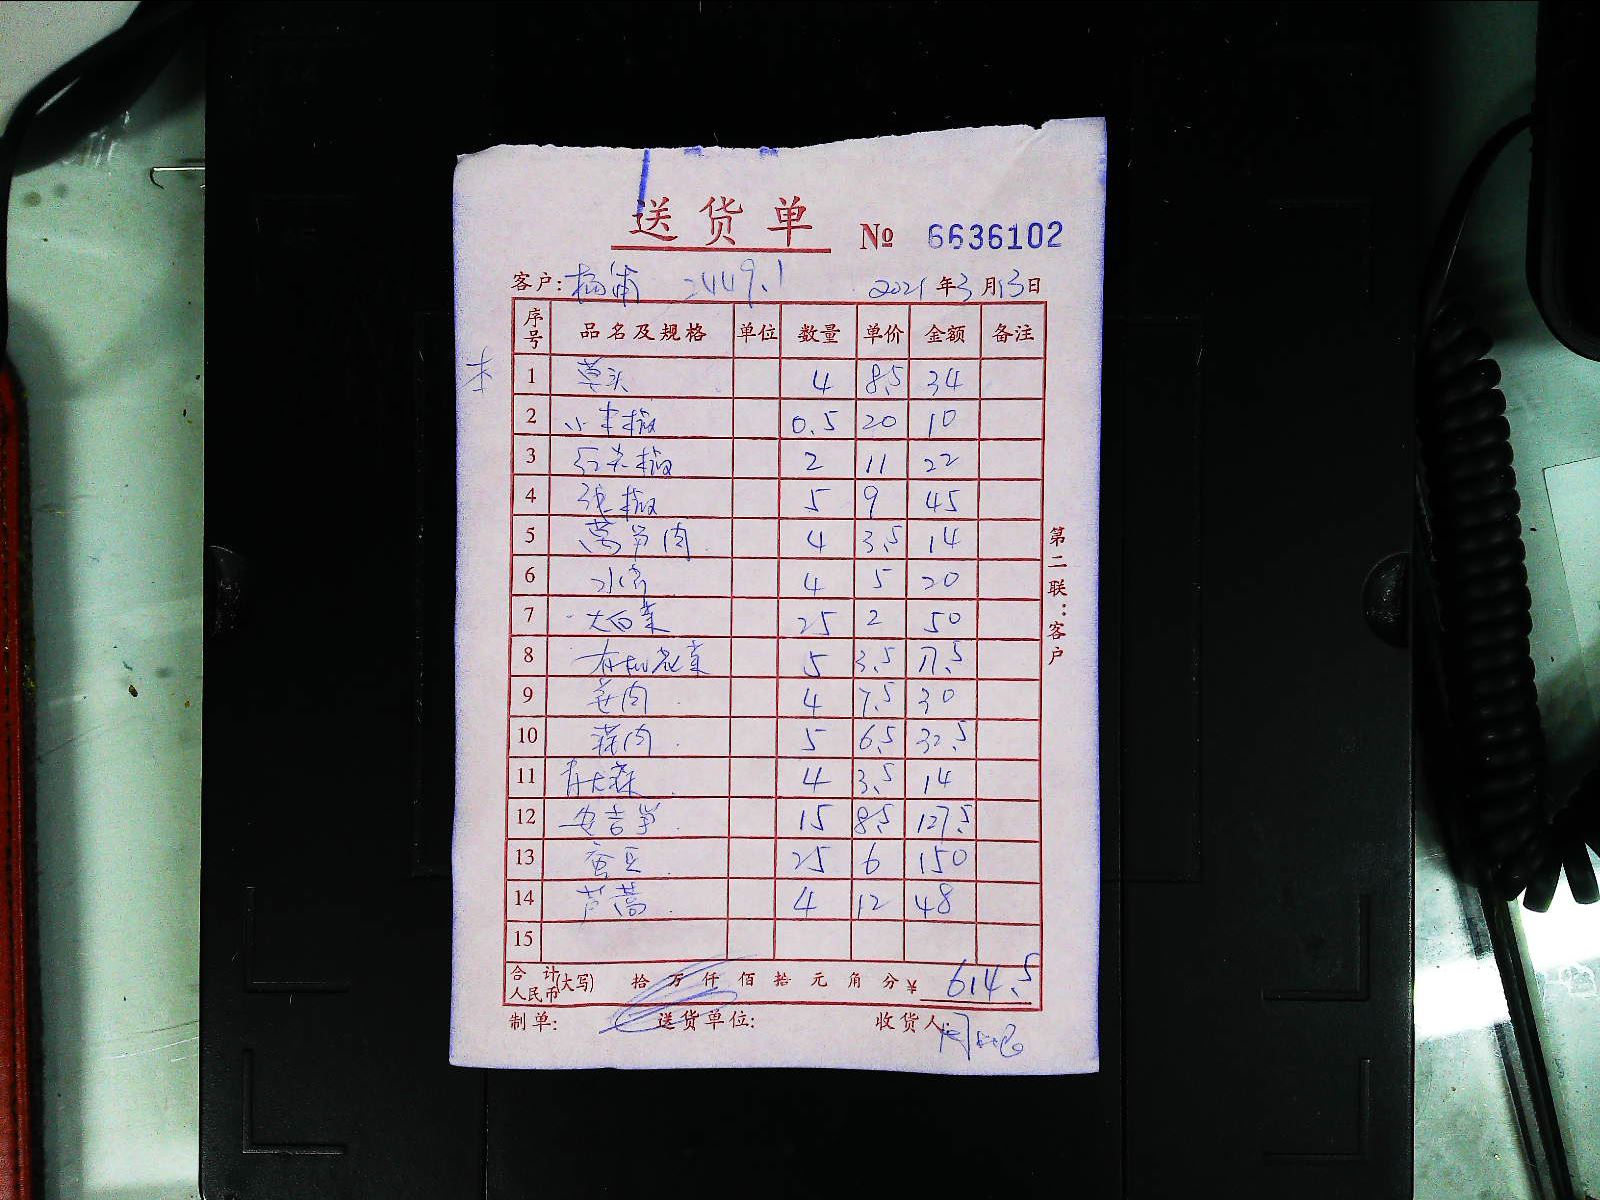 送货单 № 6636102
客户: 杨浦 2449.1 2021年3月13日
序号 品名及规格 单位 数量 单价 金额 备注
本
1 草头 4 8.5 34
2 小米椒 0.5 20 10
3 红尖椒 2 11 22
4 张椒 5 9 45
5 莴笋肉 4 3.5 14
6 水芹 4 5 20
7 大白菜 25 2 50
8 有机花菜 5 3.5 17.5
9 茭肉 4 7.5 30
10 藕肉 5 6.5 32.5
11 青大蒜 4 3.5 14
12 安吉笋 15 8.5 127.5
13 蚕豆 25 6 150
14 芦蒿 4 12 48
15
合计人民币(大写) 拾 万 仟 佰 拾 元 角 分 ¥ 614.5
制单: 送货单位: 收货人:
第二联:客户